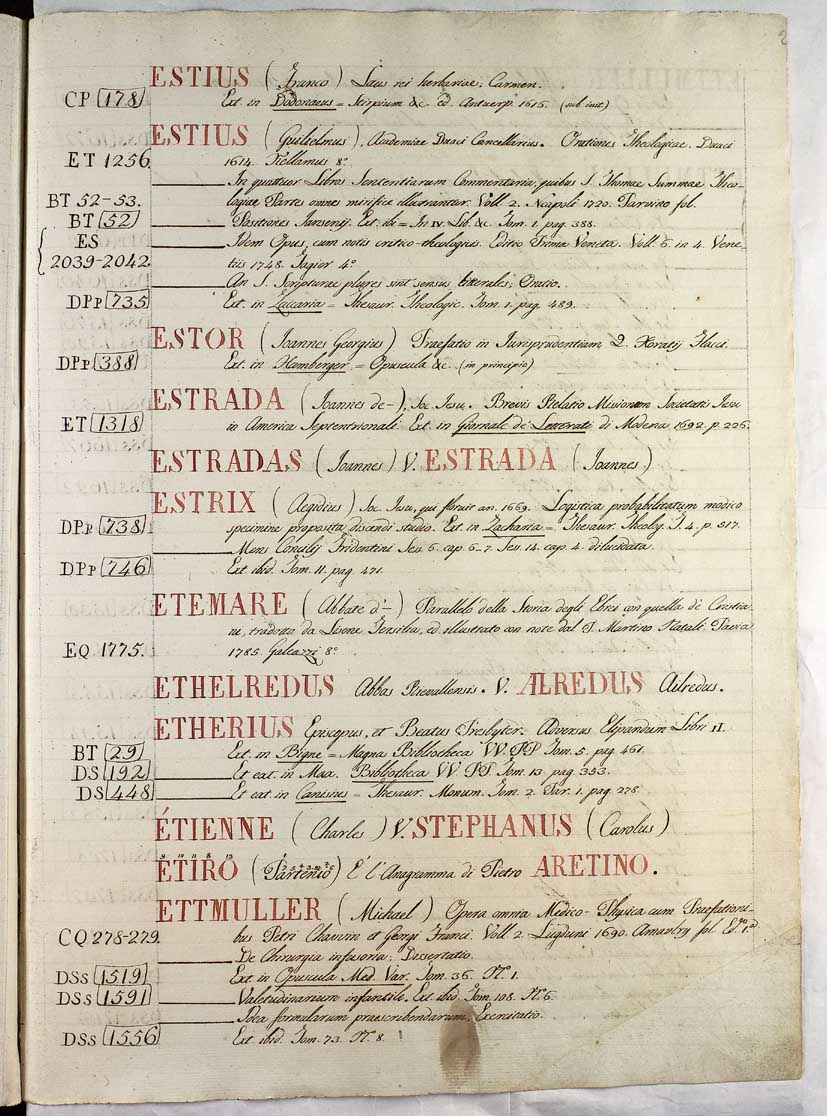 ESTIUS (Franco) Laus rei herbariae, Carmen.
CP 178 Ext. in Dodonaeus = Stirpium &c. ed. Antwerp. 1615. (sub init.)
ESTIUS (Guilielmus), Academiae Duaci Cancellarius. Orationes Theologicae. Duaci
ET 1256. 1614. Kellamus 8.°
In quattuor Libros Sententiarum Commentaria, quibus S. Thomae Summae Theo-
BT 52-53. logiae Partes omnes mirifice illustrantur. Voll. 2. Neapoli 1720. Parvino fol.
BT 52 Positiones Jansenij. Ext. ibi = In IV. Lib. &c. Tom. 1. pag. 388.
ES Idem Opus, cum notis critico-theologicis. Editio Prima Veneta. Voll. 6. in 4. Vene-
2039-2042 tiis 1748. Tagier 4.°
An S. Scripturae plures sint sensus litterales, Oratio.
DPP 735 Ext. in Zaccaria = Thesaur. Theologic. Tom. 1. pag. 489.
ESTOR (Ioannes Georgius) Praefatio in Iurisprudentiam Q. Horatij Flacci.
DPP 388 Ext. in Hamberger = Opuscula &c. (in principio)
ESTRADA (Ioannes de-), Soc. Iesu. Brevis Relatio Missionum Societatis Iesu
ET 1318 in America Septentrionali. Ext. in Giornale de' Letterati di Modena 1692. p. 226.
ESTRADAS (Ioannes) V. ESTRADA (Ioannes)
ESTRIX (Aegidius) Soc. Iesu, qui floruit an. 1669. Logistica probabilitatum modico
DPP 738 specimine proposita discendi studio. Ext. in Zacharia = Thesaur. Theolog. T. 4. p. 517.
Mens Concilij Tridentini Sess. 6. cap. 6-7. Sess. 14. cap. 4. dilucidata.
DPP 746 Ext. ibid. Tom. 11. pag. 471.
ETEMARE (Abbate d'-) Parallelo della Storia degli Ebrei con quella de' Cristia-
ni, tradotto da Lisone Tersilio, ed illustrato con note dal P. Martino Natali. Pavia
EQ 1775. 1785. Galeazzi 8.°
ETHELREDUS Abbas Rievallensis. V. ALREDUS Ailredus.
ETHERIUS Episcopus, et Beatus Presbyter. Adversus Elipandum Libri II.
BT 29 Ext. in Bigne = Magna Bibliotheca VV. PP. Tom. 5. pag. 461.
DS 192 Et ext. in Max. Bibliotheca VV. PP. Tom. 13. pag. 353.
DS 448 Et ext. in Canisius = Thesaur. Monum. Tom. 2. Par. 1. pag. 278.
ÉTIENNE (Charles) V. STEPHANUS (Carolus)
ETIRO (Partenio) È l'Anagramma di Pietro ARETINO.
ETTMULLER (Michael) Opera omnia Medico-Physica cum Praefationi-
CQ 278-279. bus Petri Chauvin et Georgi Franci. Voll. 2. Lugduni 1690. Amaulry fol. Ed.° 1.ª
De Chirurgia infusoria, Dissertatio.
DSs 1519 Ext. in Opuscula Med. Var. Tom. 36. N.° 1.
DSs 1591 Valetudinarium infantile, Ext. ibid. Tom. 108. N.° 6.
Idea formularum praescribendarum, Exercitatio.
DSs 1556 Ext. ibid. Tom. 73. N.° 8.